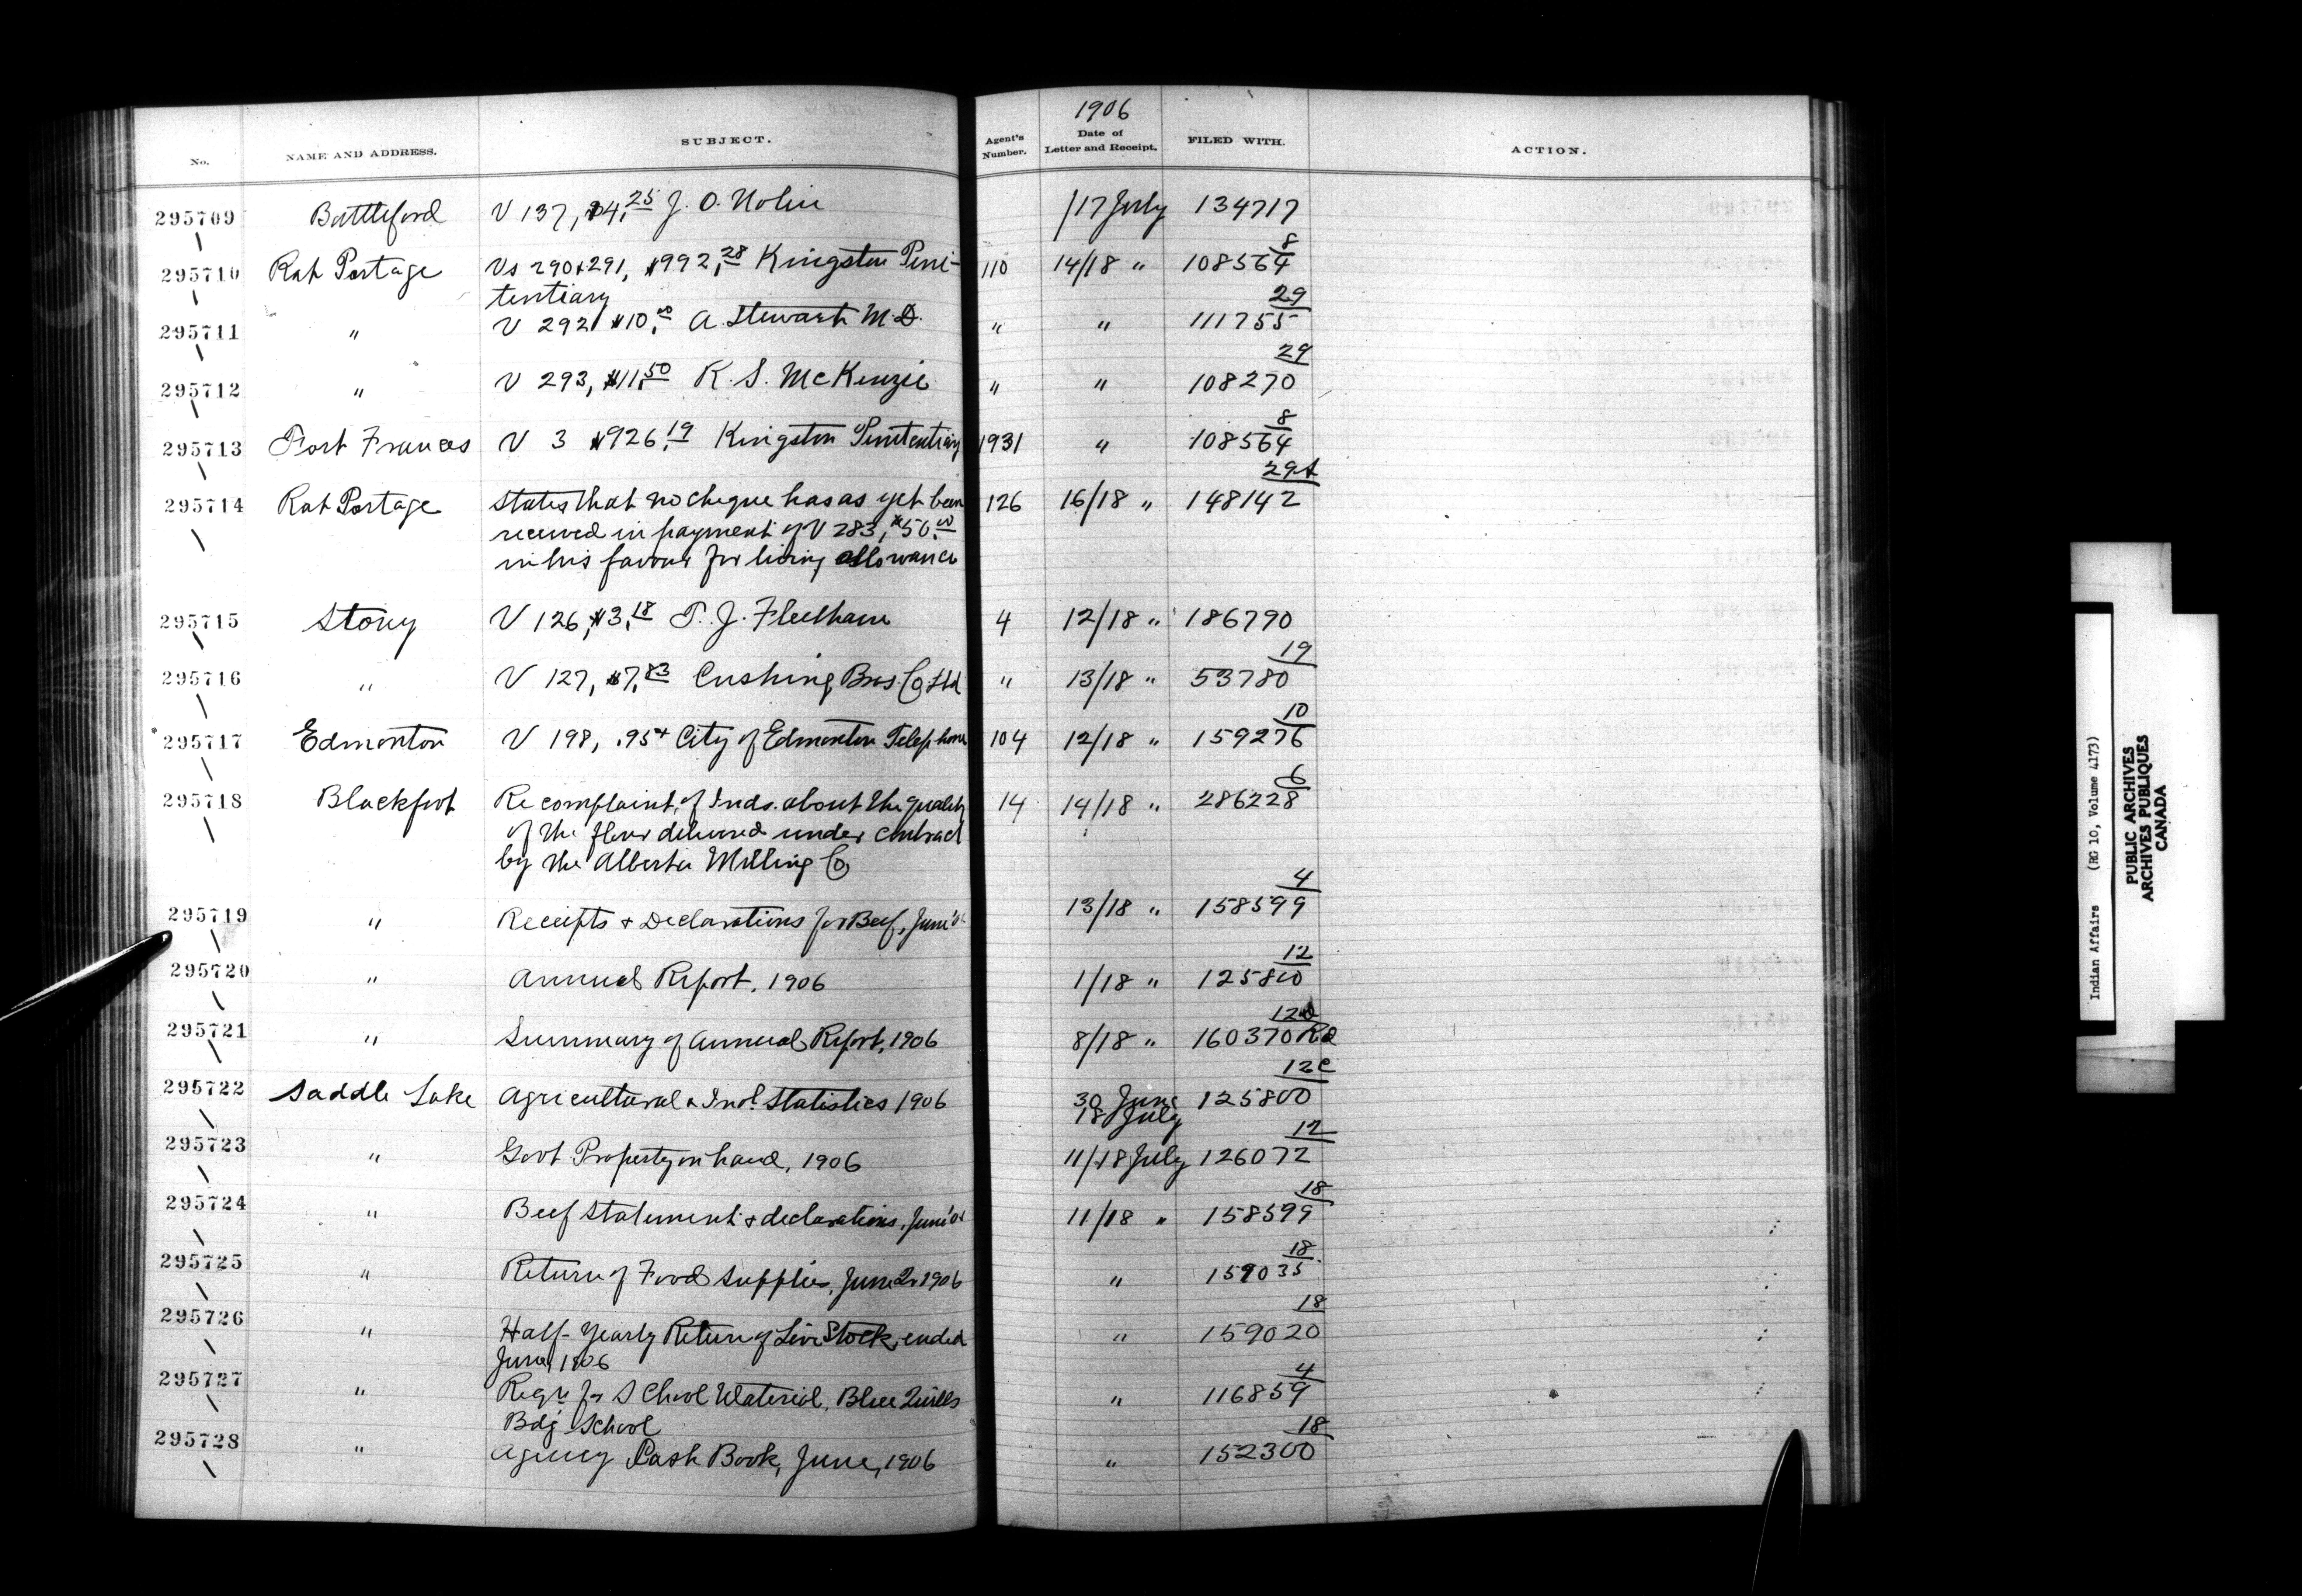 No. NAME AND ADDRESS. SUBJECT. Agent's Number. 1906 Date of Letter and Receipt. FILED WITH. ACTION.
295709 Battleford V 137, $4.25 J. O. Nolin /17 July 134717
295710 Rat Portage Vs 290+291, $992.28 Kingston Peni- 110 14/18 " 108564 8
tentiary
295711 " V 292 $10.00 A. Stewart M.D. " " 111755 29
295712 " V 293, $11.50 R. S. McKenzie " " 108270 29
295713 Fort Frances V 3 $926.19 Kingston Penitentiary 1931 " 108564 8
295714 Rat Portage States that no cheque has as yet been 126 16/18 " 148142 29A
received in payment of V 283, $50.00
in his favour for living allowance
295715 Stony V 126, $3.18 T. J. Fleetham 4 12/18 " 186790
295716 " V 127, $7.83 Cushing Bros. Co. Ltd " 13/18 " 53780 19
295717 Edmonton V 198, .95 City of Edmonton Telephone 104 12/18 " 159276 10
295718 Blackfoot Re complaint of Inds. about the quality 14 14/18 " 286228 6
of the flour delivered under contract
by the Alberta Milling Co
295719 " Receipts + Declarations for Beef, June 13/18 " 158599 4
295720 " Annual Report, 1906 1/18 " 125800 12
295721 " Summary of Annual Report, 1906 8/18 " 160370 Rd
295722 Saddle Lake Agricultural & Indl. Statistics 1906 30 June 125800 12C
18 July
295723 " Govt Property on hand, 1906 11/18 July 126072 12
295724 " Beef Statement + declarations, June 11/18 " 158599 18
295725 " Return of Food Supplies, June 1906 " 159035 18
295726 " Half-Yearly Return of Live Stock, ended " 159020 18
June 1906
295727 " Reqn for School Material, Blue Quills " 116859 4
Bdg School
295728 " Agency Cash Book, June, 1906 " 152300 18
Indian Affairs (RG 10, Volume 4173)
PUBLIC ARCHIVES
ARCHIVES PUBLIQUES
CANADA